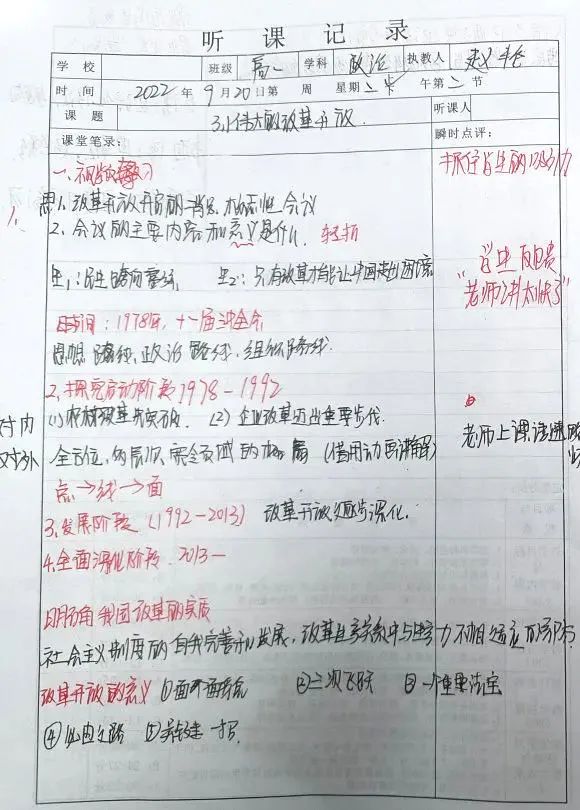 听课记录
学校 班级 高一 学科 政治 执教人
时间 2022年9月20日第 周 星期二 午第二节
课题 3.1伟大的改革开放 听课人
课堂笔录: 瞬时点评:
一、
思1、改革开放开启的背景、标志性会议
2、会议的主要内容和意义是什么
生1:民生 生2:只有改革才能让中国走出困境
"学生反馈
老师讲太快了"
时间:1978年,十一届三中全会
思想路线、政治路线、组织路线
2、探究启动阶段1978-1992
(1)农村改革率先突破 (2)企业改革迈出重要步伐
对内
对外
全方位、多层次、宽领域的格局(借用动画讲解)
老师上课语速
点→线→面
3、发展阶段(1992-2013) 改革开放逐步深化
4、全面深化阶段 2013—
明确我国改革的实质
社会主义制度的自我完善和发展,改革生产关系中与生产力不相适应的部分
改革开放的意义 ① ②三次飞跃 ③一个重要法宝
④必由之路 ⑤关键一招